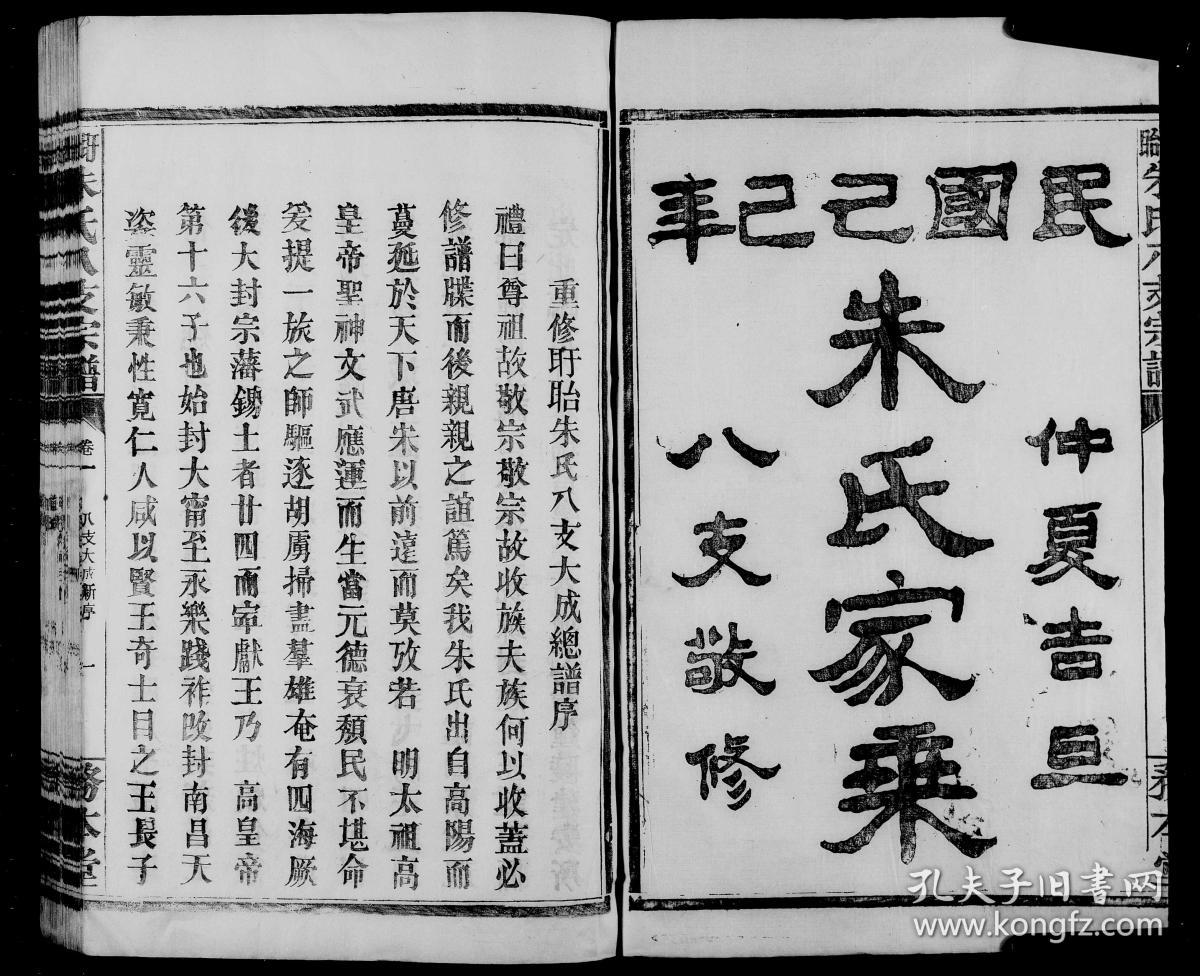 民國己巳年
仲夏吉旦
朱氏家乘
八支敬修
重修盱眙朱氏八支大成總譜序
禮曰尊祖故敬宗敬宗故收族夫族何以收蓋必
修譜牒而後親親之誼篤矣我朱氏出自高陽而
蔓延於天下唐宋以前遠而莫攷若 明太祖高
皇帝聖神文武應運而生當元德衰頽民不堪命
爰提一旅之師驅逐胡虜掃盡羣雄奄有四海厥
後大封宗藩錫土者廿四而寧獻王乃 高皇帝
第十六子也始封大甯至永樂踐祚改封南昌天
姿靈敏秉性寬仁人咸以賢王奇士目之王長子
朱氏八支宗譜
卷一
八支大成新序
一
務本堂
孔夫子旧书网
www.kongfz.com